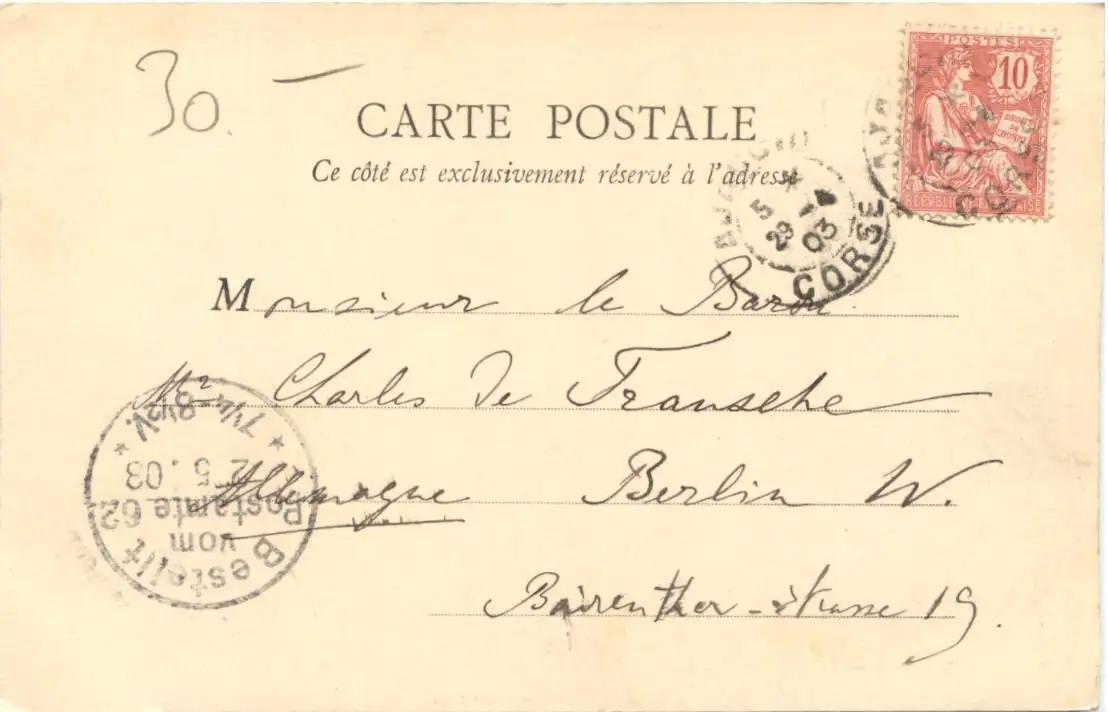 30. —
CARTE POSTALE
Ce côté est exclusivement réservé à l'adresse
POSTES
10
DROITS
DE
L'HOMME
RÉPUBLIQUE FRANÇAISE
CORSE
AJACCIO
5
29
03
CORSE
Monsieur le Baron
Mr Charles de Transehe
Allemagne Berlin W.
Bairenther-strasse 19.
Bestellt
vom
Postamte 62
2.5.03
7¼-8½V.